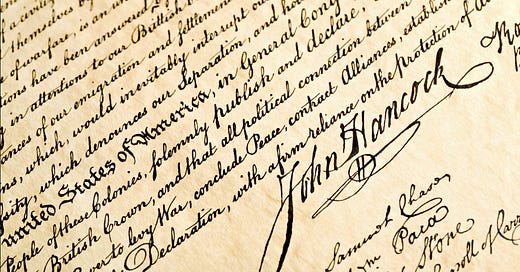 themselves by
of warfare, is an
tions have been answered
in attentions to our British
ances of our emigration and settlement
ns, which, would inevitably interrupt our
sity, which denounces our Separation, and hold
united States of America, in General Cong
People of these Colonies, solemnly publish and declare,
British Crown, and that all political connection between
ver to levy War, conclude Peace, contract Alliances, establis
Declaration, with a firm reliance on the protection of
John Hancock
Samuel Chase
Wm Paca
Stone
Carroll of